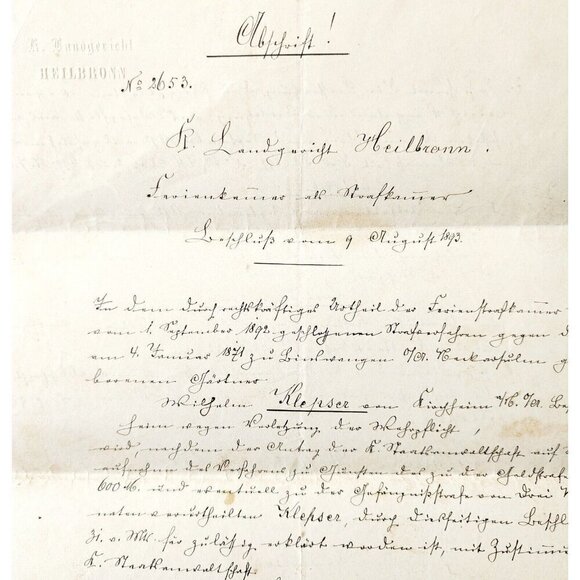 Abschrift!
K. Landgericht
HEILBRONN
No 2653.
K. Landgericht Heilbronn.
Ferienkammer als Strafkammer
Beschluß vom 9 August 1893.
In dem durch rechtskräftiges Urtheil der Ferienstrafkammer
vom 1. September 1892 geschlossenen Strafverfahren gegen d
am 4. Januar 1871 zu Binswangen O/A. Neckarsulm g
borenen Gärtner
Wilhelm Klepser von Kirchheim a/N. O/A. Besig
heim wegen Verletzung der Wehrpflicht,
wird, nachdem der Antrag der K. Staatsanwaltschaft auf
aufnahme des Verfahrens zu Gunsten des zu der Geldstrafe
600 M. und eventuell zu der Gefängnißstrafe von Drei
naten verurtheilten Klepser, durch diesseitigen Beschl
v. Mts. für zulässig erklärt worden ist, mit Zustimm
K. Staatsanwaltschaft